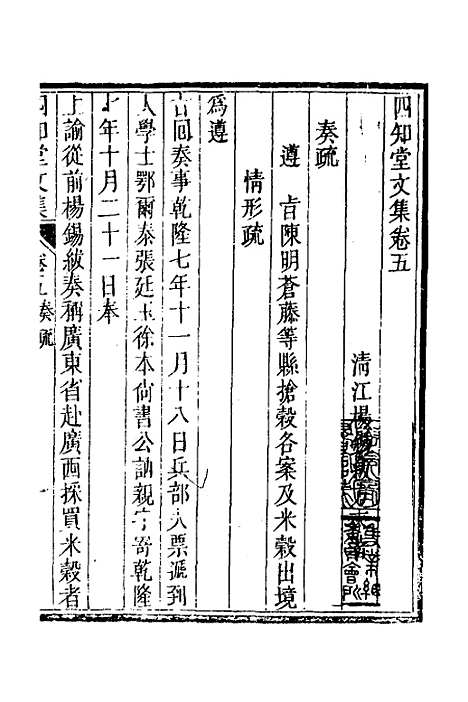 四知堂文集卷五
清江楊
奏疏
遵　旨陳明蒼藤等縣搶穀各案及米穀出境
情形疏
爲遵
旨回奏事乾隆七年十一月十八日兵部火票遞到
大學士鄂爾泰張廷玉徐本尙書公訥親字寄乾隆
七年十月二十一日奉
上諭從前楊錫紱奏稱廣東省赴廣西採買米穀者
四知堂文集 卷五奏疏